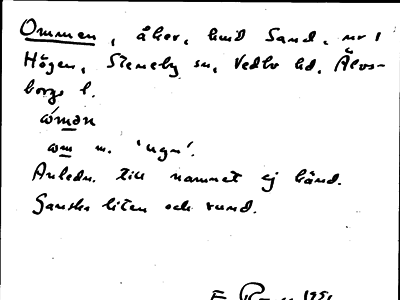 Ommen, åker, hmd Sand, nr 1
Högen, Steneby sn, Vedbo hd, Älvs-
borgs l.
ẃmən
wm m. 'ugn'.
Anledn. till namnet ej känd.
Ganska liten och rund.
1951